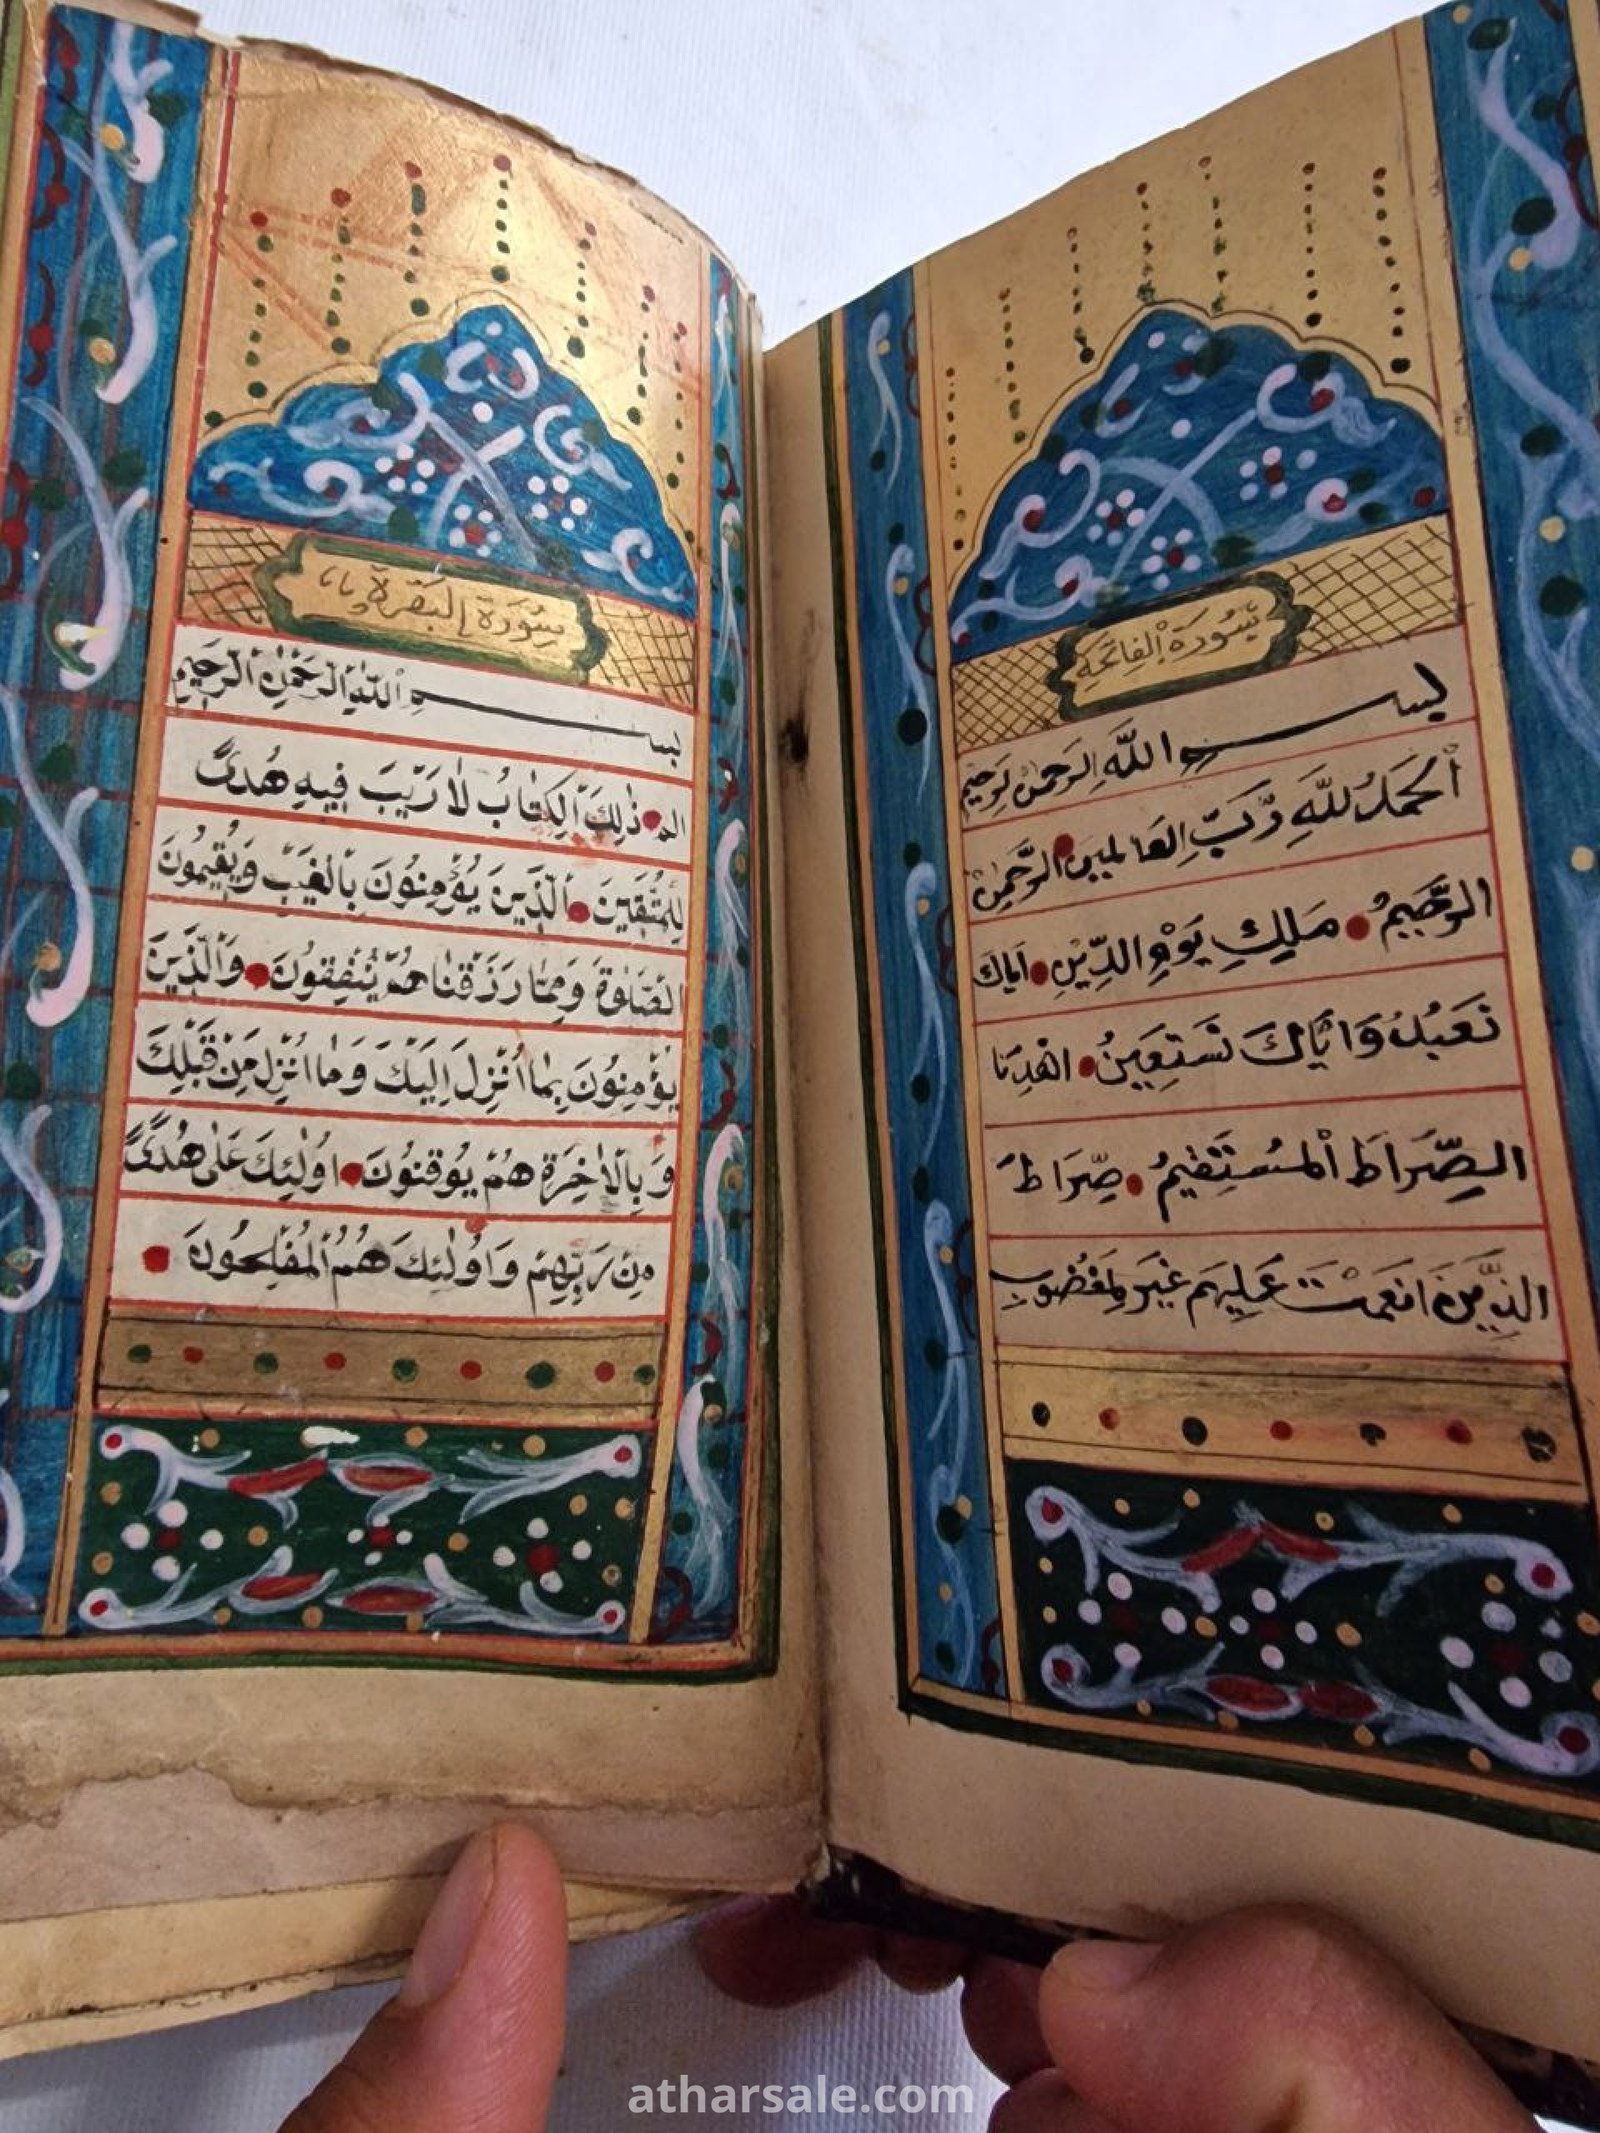 سُورَة الفَاتِحَة
بسم اللّه الرحمن لرحيم
اَلحَمدُ لِلّهِ رَبِّ العَالمين الرَّحمٰنِ
الرَّحِيمُ مَلِكِ يَوْمِ الدِّينِ اياك
نَعبُدُ وَايَّاكَ نَستَعِينُ اهدِنا
الصِّرَاطَ المُستَقيمُ صِرَاطَ
الذِّينَ انعَمتَ عَليهَم غَيرِ لمَغضُوبِ
سُورَة البَقَرَة
بسم اللّه الرَّحْمٰن الرَّحِيم
الم ذٰلِكَ الكِتَابُ لَا رَيْبَ فِيهِ هُدىً
لِلْمُتَّقِينَ الَّذِينَ يُؤْمِنُونَ بِالْغَيْبِ وَيُقِيمُونَ
الصَّلٰوةَ وَمِمَّا رَزَقْنَاهُمْ يُنْفِقُونَ وَالَّذِينَ
يُؤْمِنُونَ بِمَا اُنْزِلَ اِلَيْكَ وَمَا اُنْزِلَ مِنْ قَبْلِكَ
وَبِالْاٰخِرَةِ هُمْ يُوقِنُونَ اُولٰئِكَ عَلٰى هُدىً
مِنْ رَبِّهِمْ وَاُولٰئِكَ هُمُ الْمُفْلِحُونَ
atharsale.com